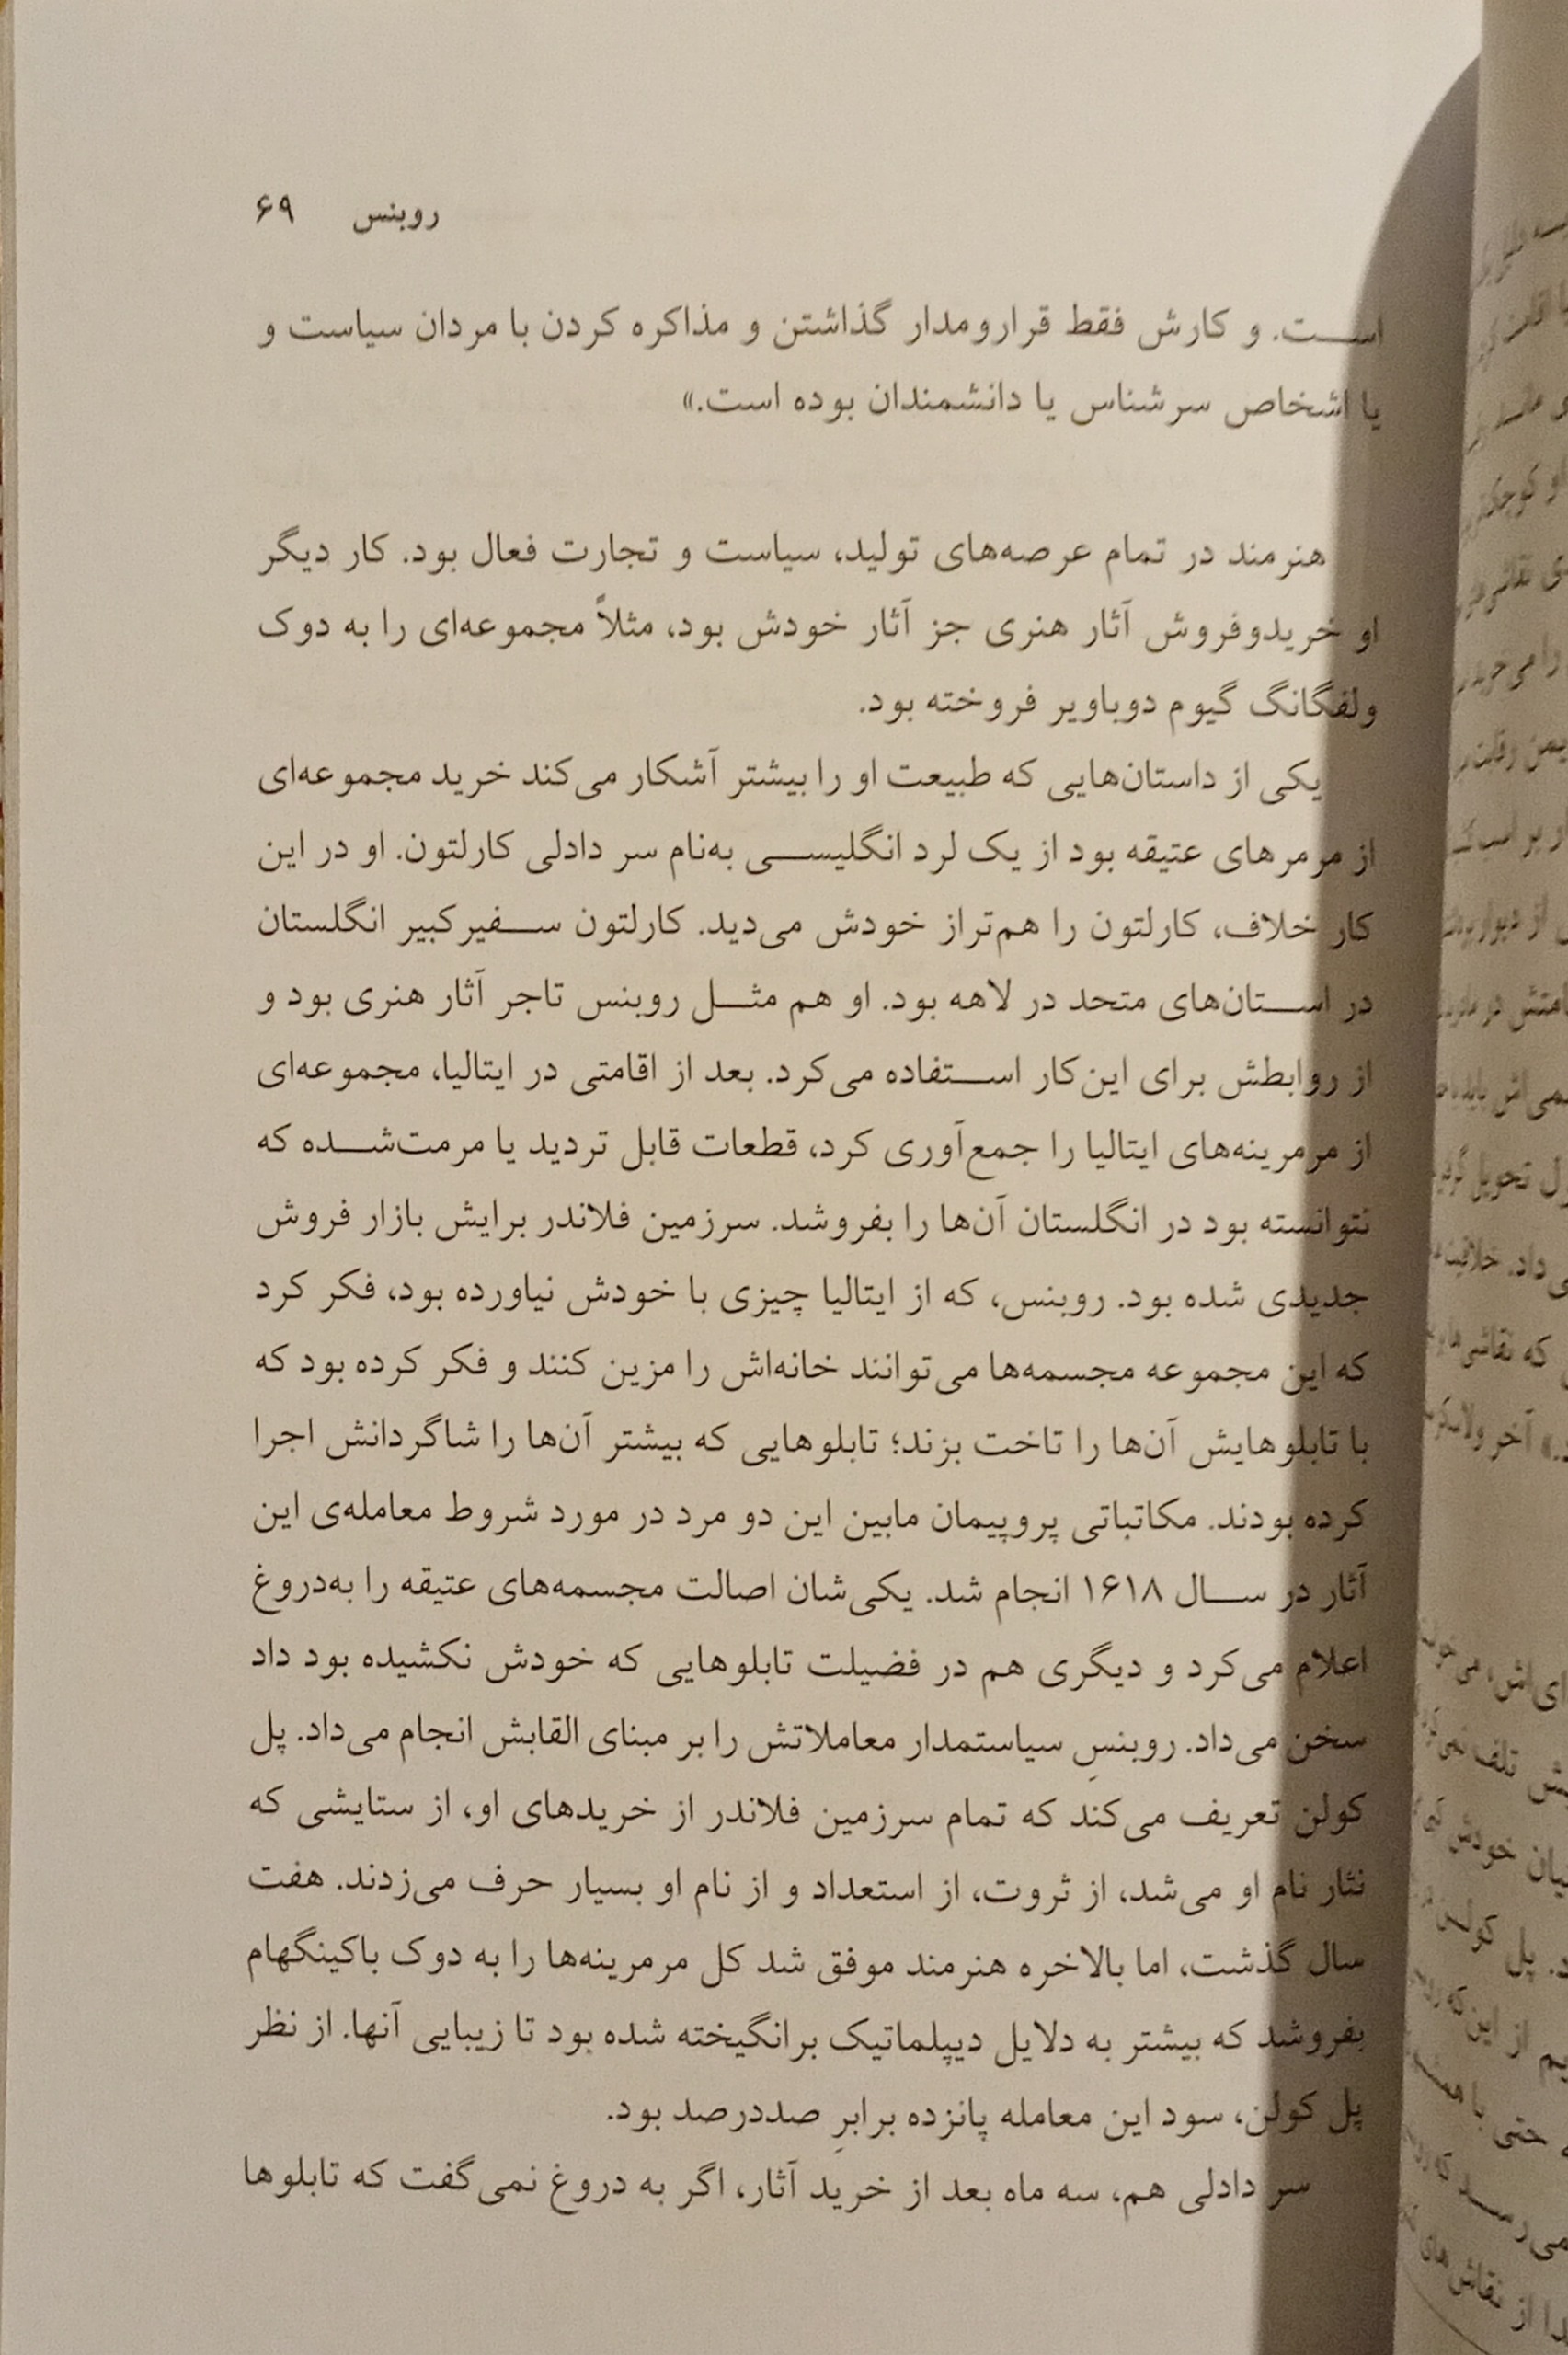 روبنس ۶۹
است. و کارش فقط قرارومدار گذاشتن و مذاکره کردن با مردان سیاست و
یا اشخاص سرشناس یا دانشمندان بوده است.»
هنرمند در تمام عرصه‌های تولید، سیاست و تجارت فعال بود. کار دیگر
او خریدوفروش آثار هنری جز آثار خودش بود، مثلاً مجموعه‌ای را به دوک
ولفگانگ گیوم دوباویر فروخته بود.
یکی از داستان‌هایی که طبیعت او را بیشتر آشکار می‌کند خرید مجموعه‌ای
از مرمرهای عتیقه بود از یک لرد انگلیسی به‌نام سر دادلی کارلتون. او در این
کار خلاف، کارلتون را هم‌تراز خودش می‌دید. کارلتون سفیرکبیر انگلستان
در استان‌های متحد در لاهه بود. او هم مثل روبنس تاجر آثار هنری بود و
از روابطش برای این‌کار استفاده می‌کرد. بعد از اقامتی در ایتالیا، مجموعه‌ای
از مرمرینه‌های ایتالیا را جمع‌آوری کرد، قطعات قابل تردید یا مرمت‌شده که
نتوانسته بود در انگلستان آن‌ها را بفروشد. سرزمین فلاندر برایش بازار فروش
جدیدی شده بود. روبنس، که از ایتالیا چیزی با خودش نیاورده بود، فکر کرد
که این مجموعه مجسمه‌ها می‌توانند خانه‌اش را مزین کنند و فکر کرده بود که
با تابلوهایش آن‌ها را تاخت بزند؛ تابلوهایی که بیشتر آن‌ها را شاگردانش اجرا
کرده بودند. مکاتباتی پروپیمان مابین این دو مرد در مورد شروط معامله‌ی این
آثار در سال ۱۶۱۸ انجام شد. یکی‌شان اصالت مجسمه‌های عتیقه را به‌دروغ
اعلام می‌کرد و دیگری هم در فضیلت تابلوهایی که خودش نکشیده بود داد
سخن می‌داد. روبنسِ سیاستمدار معاملاتش را بر مبنای القابش انجام می‌داد. پل
کولن تعریف می‌کند که تمام سرزمین فلاندر از خریدهای او، از ستایشی که
نثار نام او می‌شد، از ثروت، از استعداد و از نام او بسیار حرف می‌زدند. هفت
سال گذشت، اما بالاخره هنرمند موفق شد کل مرمرینه‌ها را به دوک باکینگهام
بفروشد که بیشتر به دلایل دیپلماتیک برانگیخته شده بود تا زیبایی آنها. از نظر
پل کولن، سود این معامله پانزده برابرِ صددرصد بود.
سر دادلی هم، سه ماه بعد از خرید آثار، اگر به دروغ نمی‌گفت که تابلوها